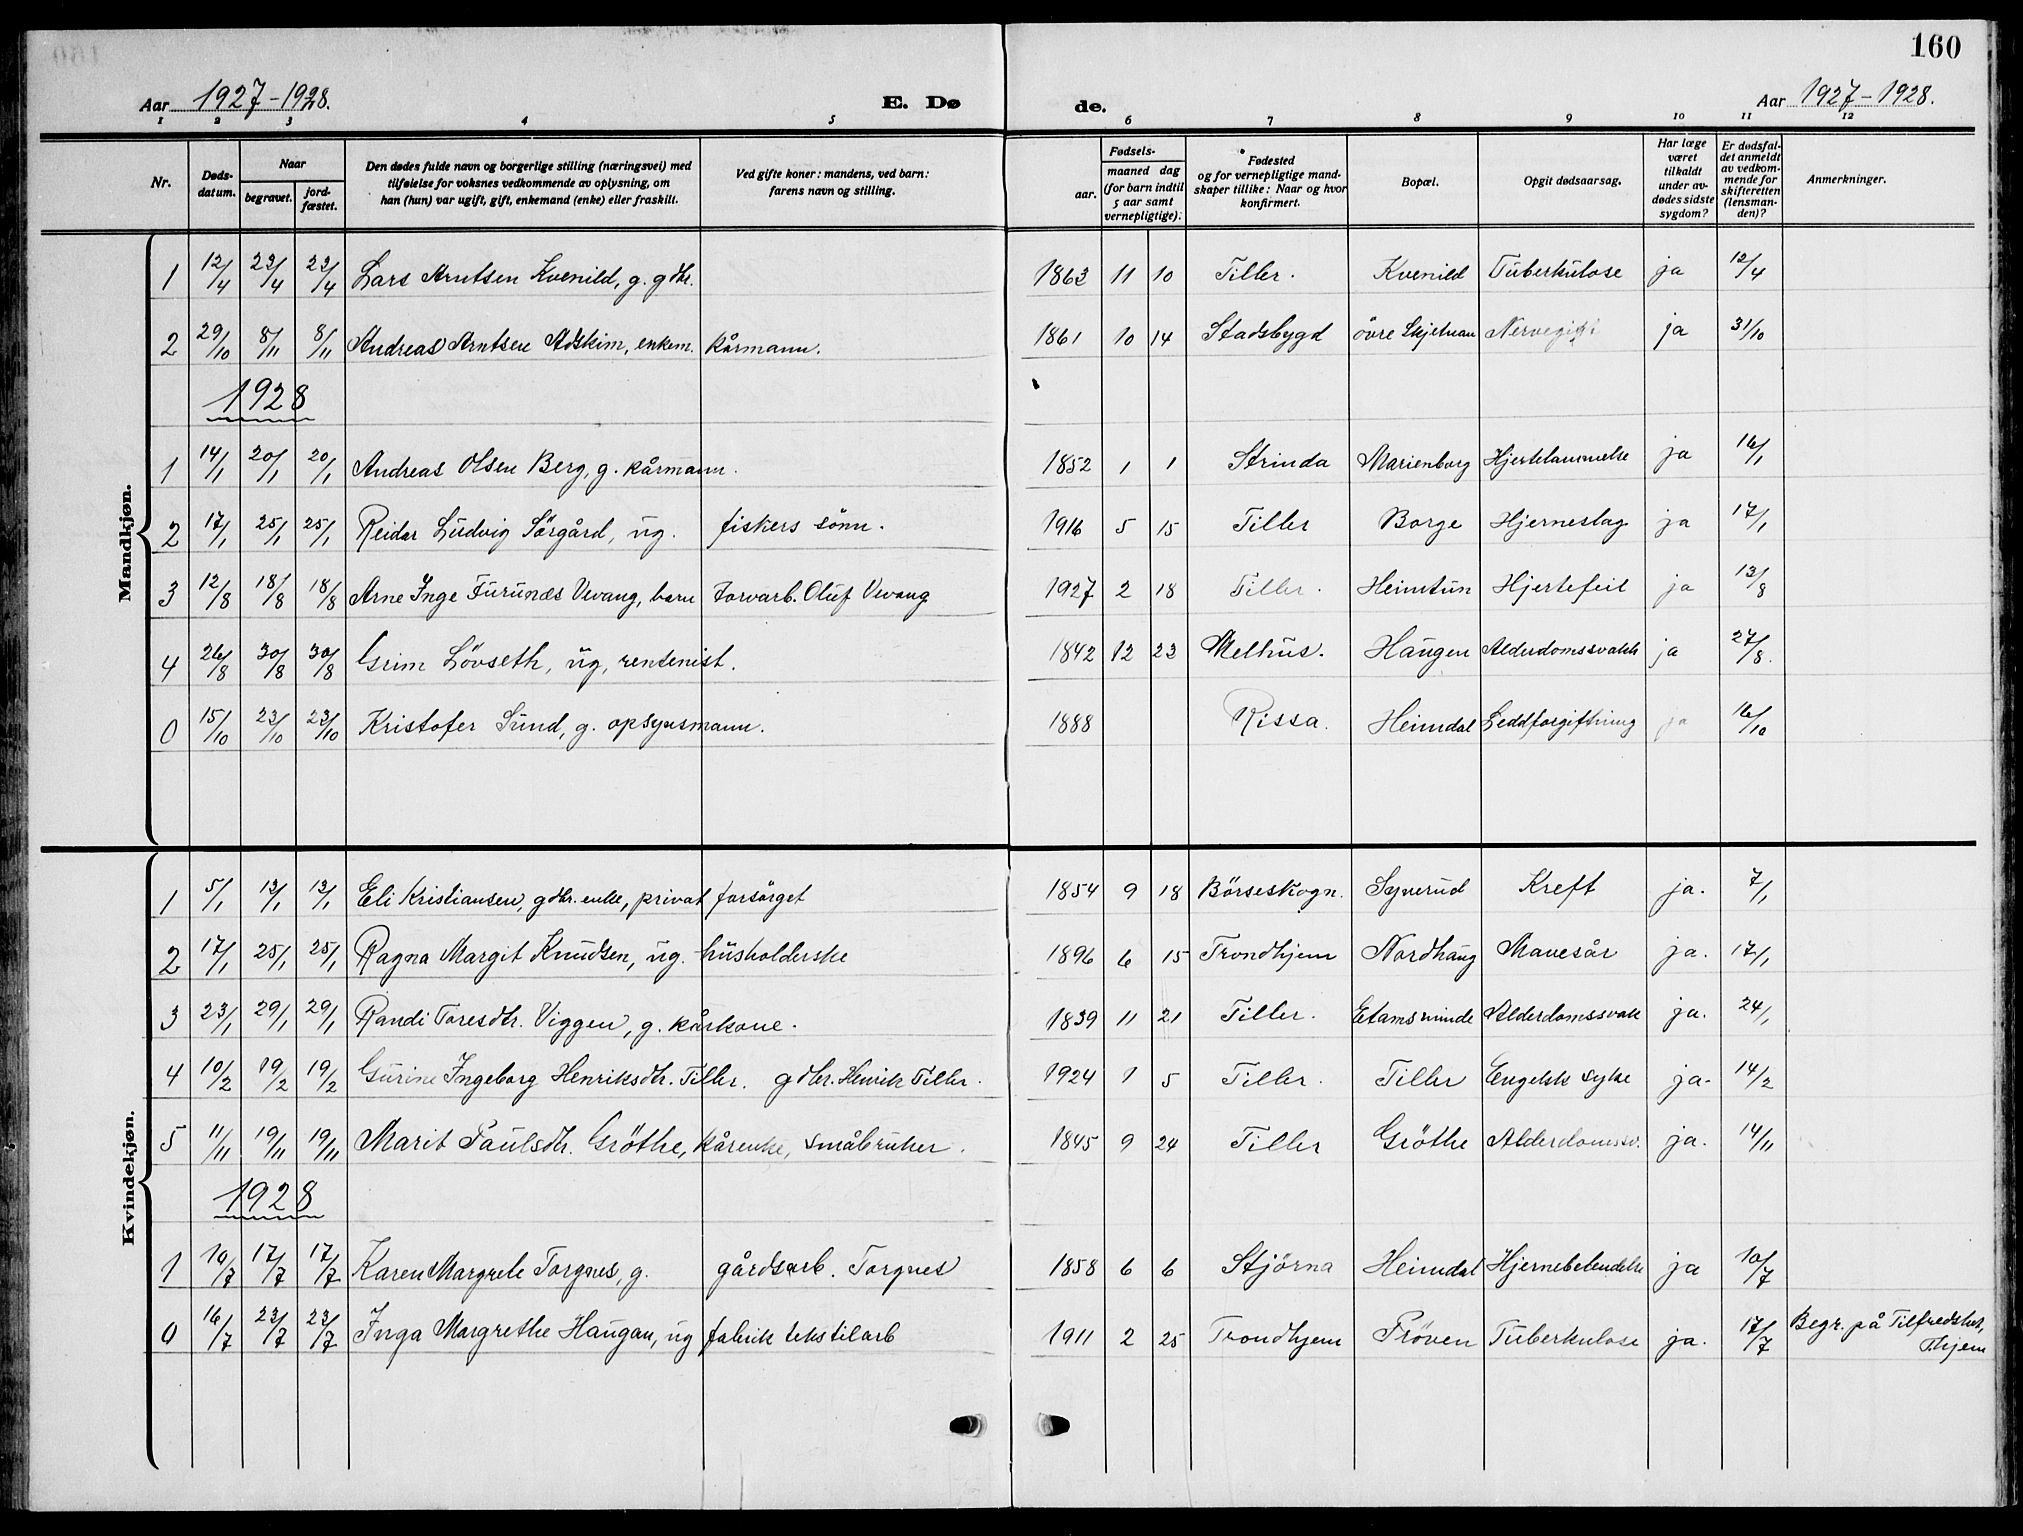 160
Aar 1927-1928. E. Dø de. Aar 1927-1928.
1 2 3 4 5 6 7 8 9 10 11 12
Nr. Døds-datum. Naar begravet. jord-fæstet. Den dødes fulde navn og borgerlige stilling (næringsvei) med tilføielse for voksnes vedkommende av oplysning, om han (hun) var ugift, gift, enkemand (enke) eller fraskilt. Ved gifte koner: mandens, ved barn: farens navn og stilling. Fødsels- aar. maaned dag (for barn indtil 5 aar samt vernepligtige). Fødested og for vernepligtige mand-skaper tillike: Naar og hvor konfirmert. Bopæl. Opgit dødsaarsag. Har læge været tilkaldt under av-dødes sidste sygdom? Er dødsfal-det anmeldt av vedkom-mende for skifteretten (lensman-den)? Anmerkninger.
Mandkjøn.
1 12/4 23/4 23/4 Lars Arntsen Kvenild, g. gdbr. 1863 11 10 Tiller. Kvenild Tuberkulose ja 12/4
2 29/10 8/11 8/11 Andreas Arntsen Adskim, enkem. kårmann. 1861 10 14 Stadsbygd øvre Skjetnan ja 31/10
1928
1 14/1 20/1 20/1 Andreas Olsen Berg, g. kårmann. 1852 1 1 Strinda Marienborg Hjertelammelse ja 16/1
2 17/1 25/1 25/1 Reidar Ludvig Sörgård, ug. fiskers sönn. 1916 5 15 Tiller Borge Hjerneslag ja 17/1
3 12/8 18/8 18/8 Arne Inge Furunæs Vevang, barn Torvarb. Oluf Vevang 1927 2 18 Tiller. Heimtun Hjertefeil ja 13/8
4 26/8 30/8 30/8 Grim Lövseth, ug, rentenist. 1842 12 23 Melhus. Haugen Alderdomssvakh ja 27/8.
0 15/10 23/10 23/10 Kristofer Sund, g. opsynsmann. 1888 Rissa. Heimdal Leddforgiftning ja 16/10
Kvindekjøn.
1 5/1 13/1 13/1 Eli Kristiansen, gdbr. enke, privat forsörget 1854 9 18 Börseskogn. Syverud Kreft ja. 7/1
2 17/1 25/1 25/1 Ragna Margit Knudsen, ug. husholderske 1896 6 15 Trondhjem Nordhaug Mavesår ja. 17/1
3 23/1 29/1 29/1 Randi Toresdtr. Viggen, g. kårkone. 1839 11 21 Tiller. Etamsminde Alderdomssvak ja. 24/1
4 10/2 19/2 19/2 Gurine Ingeborg Henriksdtr. Tiller. gdbr. Henrik Tiller. 1924 1 5 Tiller. Tiller Engelsk syke ja- 14/2
5 11/11 19/11 19/11 Marit Paulsdtr. Gröthe, kårenke, småbruker. 1845 9 24 Tiller Gröthe Alderdomssv. ja. 14/11
1928
1 10/7 17/7 17/7 Karen Margrete Torgnes, g. gårdsarb. Torgnes 1858 6 6 Stjörna Heimdal Hjernebetendelse ja 10/7
0 16/7 23/7 23/7 Inga Margrethe Haugan, ug fabrik tekstilarb 1911 2 25 Trondhjem Pröven Tuberkulose ja. 17/7 Begr. på Tilfredshet, Thjem